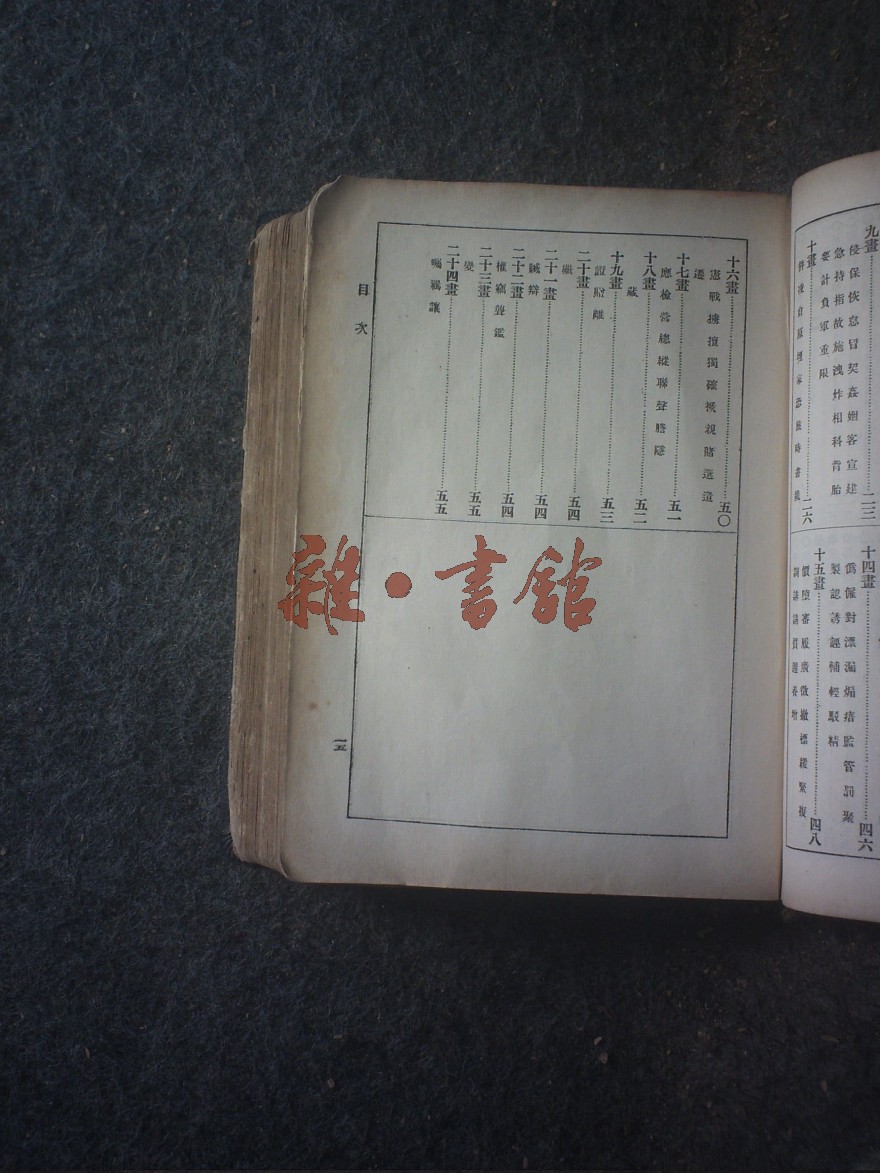 九畫……二三
侵保恢怠冒契姦姻客宣建
急持指故施洩炸相科背胎
要計負軍重限
十畫……二六
十四畫……四六
僞僱對漂漏煽瘖監管罰聚
製認誘誣輔輕駁精
十五畫……四八
價墮審履廢徵撤標緩緊複
十六畫……五〇
憲戰擄擅獨確褫親賭選遺
遷
十七畫……五一
應檢營總縱聯聲膽隱
十八畫……五二
藏
十九畫……五三
證贈離
二十畫……五四
繼
二十一畫……五四
辯
二十二畫……五四
權竊聾鑑
二十三畫……五五
變
二十四畫……五五
囑羈讓
目次
一五
雜·書館